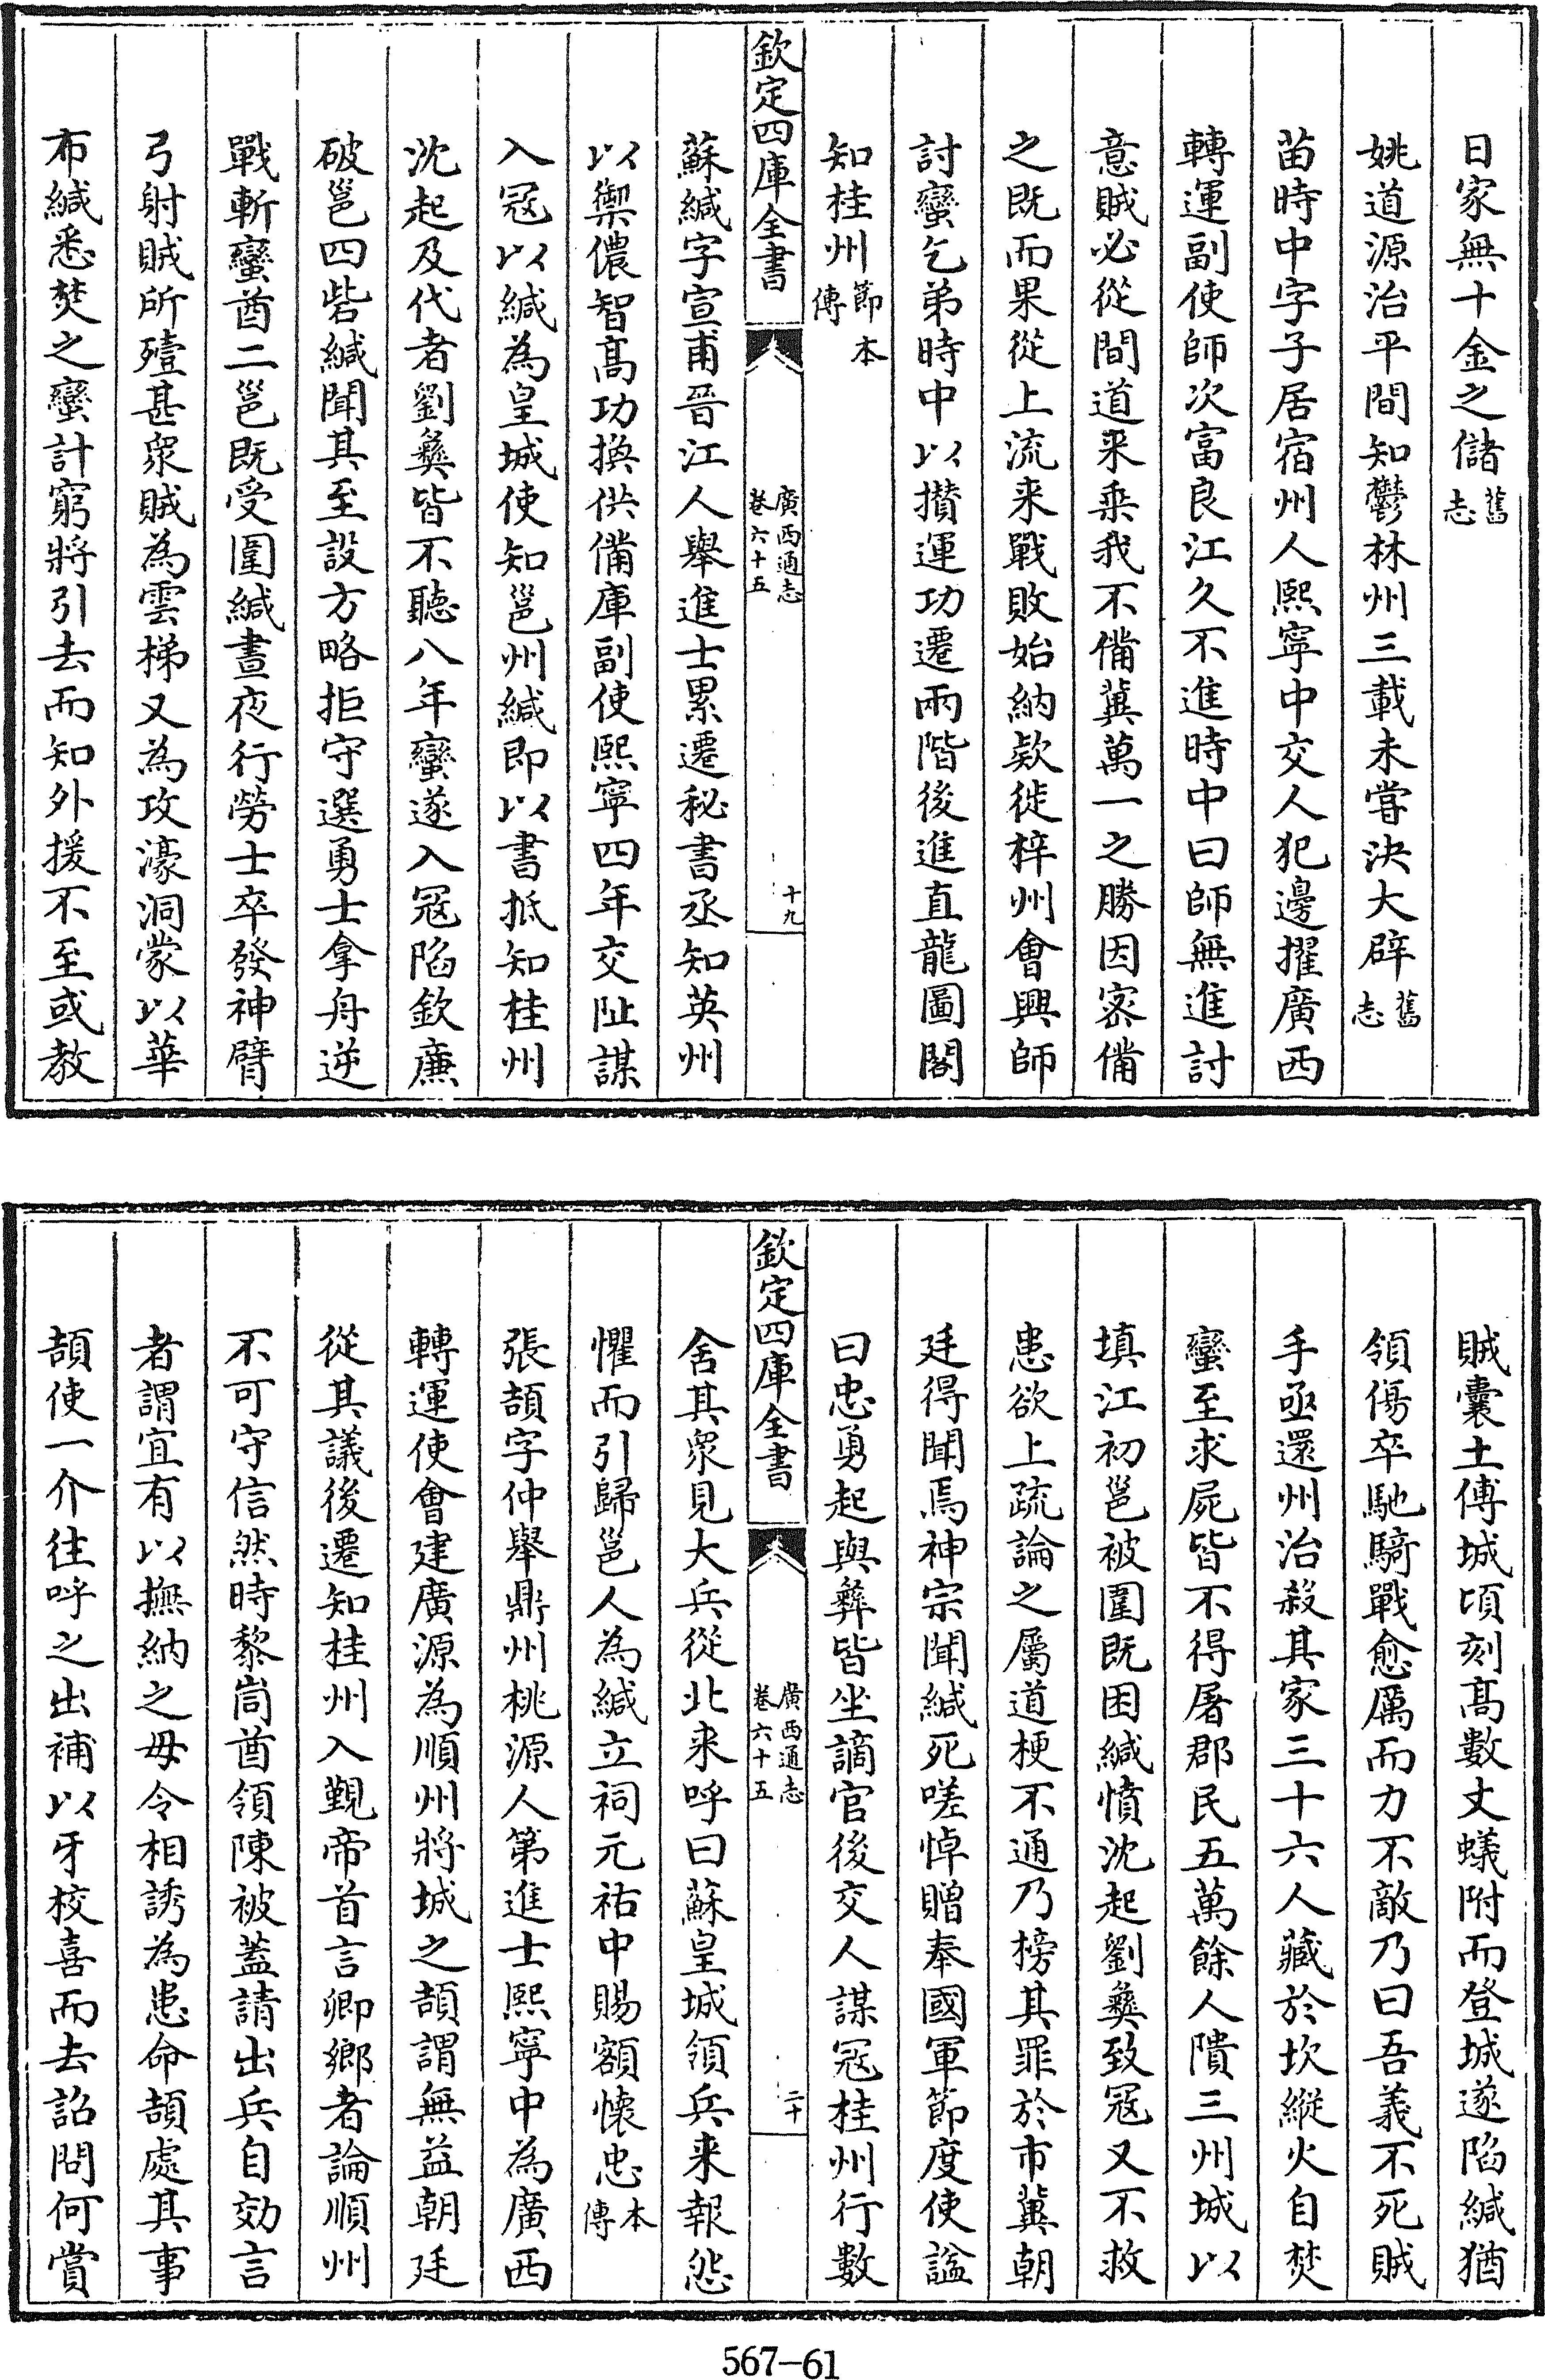 日家無十金之儲舊志
姚道源治平間知鬱林州三載未嘗決大辟舊志
苗時中字子居宿州人熙寧中交人犯邊擢廣西
轉運副使師次富良江久不進時中曰師無進討
意賊必從間道來乘我不備冀萬一之勝因宻備
之既而果從上流来戰敗始納欵徙梓州會興師
討蠻乞弟時中以攅運功遷兩階後進直龍圖閣
知桂州節本傳
欽定四庫全書
廣西通志
卷六十五
十九
蘇緘字宣甫晉江人舉進士累遷秘書丞知英州
以禦儂智髙功換供備庫副使熙寧四年交阯謀
入冦以緘為皇城使知邕州緘即以書抵知桂州
沈起及代者劉彝皆不聽八年蠻遂入冦陷欽亷
破邕四砦緘聞其至設方略拒守選勇士拿舟逆
戰斬蠻酋二邕既受圍緘晝夜行勞士卒發神臂
弓射賊所殪甚衆賊為雲梯又為攻濠洞蒙以華
布緘悉焚之蠻計窮將引去而知外援不至或教
賊囊土傅城頃刻髙數丈蟻附而登城遂陷緘猶
領傷卒馳騎戰愈厲而力不敵乃曰吾義不死賊
手亟還州治殺其家三十六人藏於坎縱火自焚
蠻至求屍皆不得屠郡民五萬餘人隤三州城以
填江初邕被圍既困緘憤沈起劉彝致冦又不救
患欲上疏論之屬道梗不通乃榜其罪於市冀朝
廷得聞焉神宗聞緘死嗟悼贈奉國軍節度使諡
曰忠勇起與彝皆坐謫官後交人謀冦桂州行數
欽定四庫全書
廣西通志
卷六十五
二十
舍其衆見大兵從北来呼曰蘇皇城領兵来報怨
懼而引歸邕人為緘立祠元祐中賜額懷忠本傳
張頡字仲舉鼎州桃源人第進士熙寧中為廣西
轉運使會建廣源為順州將城之頡謂無益朝廷
從其議後遷知桂州入覲帝首言卿鄉者論順州
不可守信然時黎峝酋領陳被蓋請出兵自効言
者謂宜有以撫納之毋令相誘為患命頡處其事
頡使一介往呼之出補以牙校喜而去詔問何賞
567-61